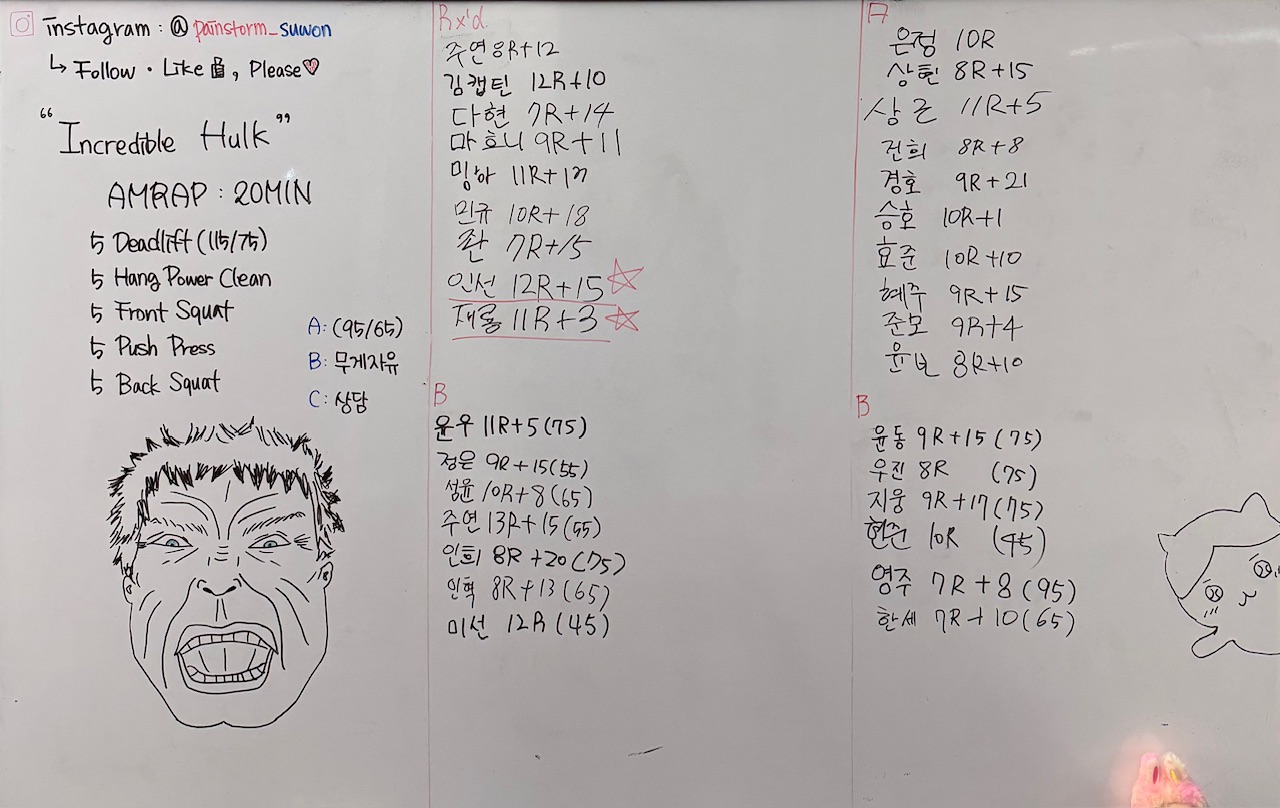 instagram : @ painstorm_suwon
↳ Follow · Like 👍, Please♡
"Incredible Hulk"
AMRAP : 20MIN
5 Deadlift (115/75)
5 Hang Power Clean
5 Front Squat
5 Push Press
5 Back Squat
A: (95/65)
B: 무게자유
C: 상담
Rx'd
주연 8R+12
김캡틴 12R+10
다현 7R+14
마호니 9R+11
밍아
민규 10R+18
7R+15
인선 12R+15 ☆
재룡 11R+3 ☆
B
윤우 11R+5 (75)
정은 9R+15 (55)
성윤 10R+8 (65)
주연 13R+15 (55)
인희 8R+20 (75)
인혁 8R+13 (65)
미선 12R (45)
A
은정 10R
상현 8R+15
상근 11R+5
건희 8R+8
경호 9R+21
승호 10R+1
효준 10R+10
혜주 9R+15
준모 9R+4
8R+10
B
윤동 9R+15 (75)
우진 8R (75)
지웅 9R+17 (75)
현준 10R (45)
영주 7R+8 (95)
한세 7R+10 (65)